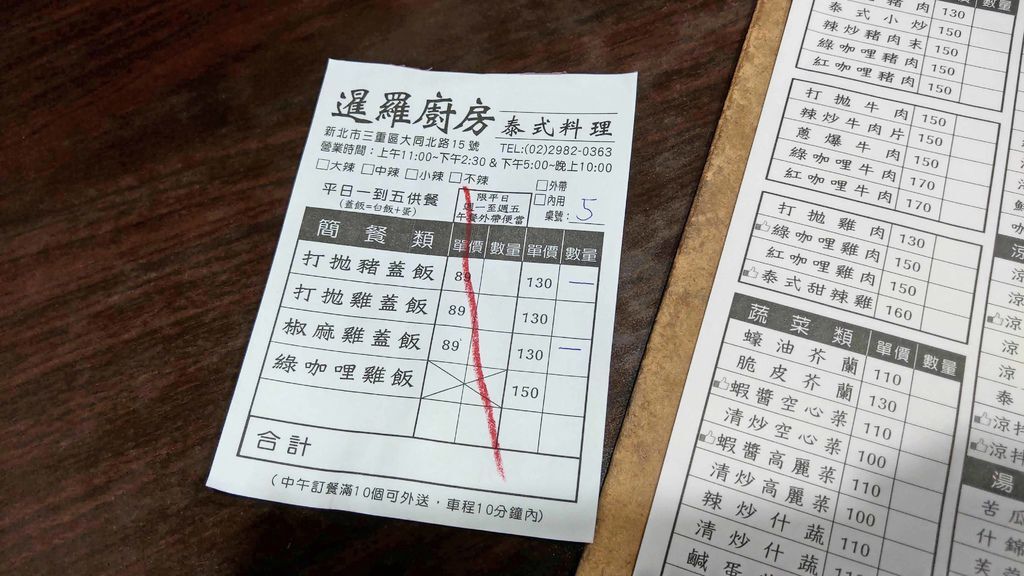 暹羅廚房 泰式料理
新北市三重區大同北路15號 TEL:(02)2982-0363
營業時間：上午11:00~下午2:30 & 下午5:00~晚上10:00
□大辣 □中辣 □小辣 □不辣 □外帶
□內用
平日一到五供餐
(蓋飯=白飯+蛋)
限平日
週一至週五
午餐外帶便當
桌號：5
簡餐類 單價 數量 單價 數量
打拋豬蓋飯 89 130 一
打拋雞蓋飯 89 130
椒麻雞蓋飯 89 130 一
綠咖哩雞飯 150
合計
(中午訂餐滿10個可外送，車程10分鐘內)
豬肉 130
泰式小炒 150
辣炒豬肉末 150
綠咖哩豬肉 150
紅咖哩豬肉 150
打拋牛肉 150
辣炒牛肉片 150
蔥爆牛肉 150
綠咖哩牛肉 170
紅咖哩牛肉 170
打拋雞肉 130
綠咖哩雞肉 150
紅咖哩雞肉 150
泰式甜辣雞 160
蔬菜類 單價 數量
蠔油芥蘭 110
脆皮芥蘭 130
蝦醬空心菜 110
清炒空心菜 100
蝦醬高麗菜 110
清炒高麗菜 100
辣炒什蔬 110
清炒什蔬 110
鹹蛋
湯
苦瓜
什錦